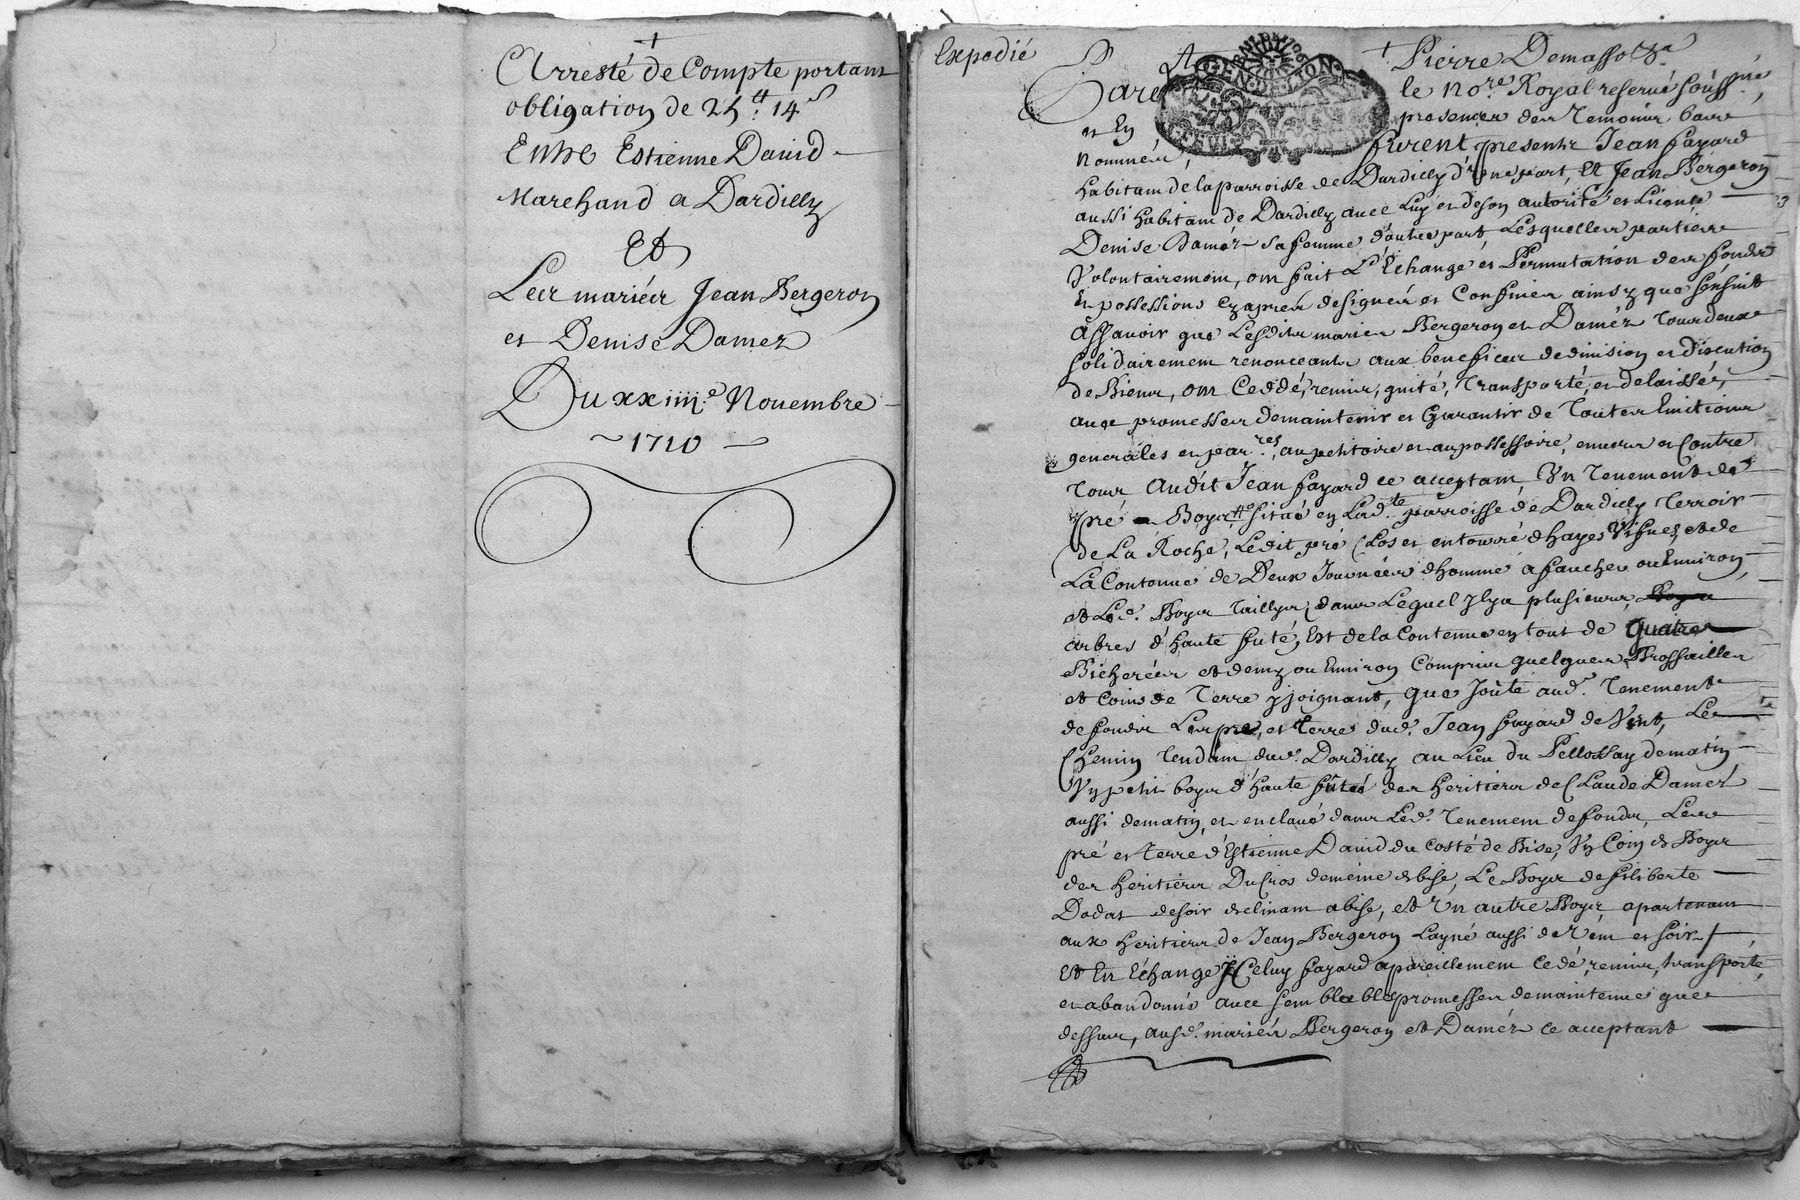 Arresté de Compte portant
obligation de 25tt. 14s
Entre Estienne David
Marchand a Dardilly
Et
Les mariés Jean Bergeron
et Denise Damez
Du xxiiii.e Novembre
1710
Expedié
Pierre Demasso
Pard le no.re Royal reservé soûss.né,
et En presences des Temoins bas
nommés, furent presents Jean fayard
habitant de la parroisse de Dardilly d'une part, Et Jean Bergeron
aussi habitant de Dardilly avec luy et de son autorité et Licence
Denise Damés sa femme d'autre part, Lesquelles parties
Volontairement, ont fait L'Echange et Permutation des fonds
Et possessions cy apres designés et Confinés ainsy que s'ensuit
Assavoir que Lesdits mariés Bergeron et Daméz tous deux
solidairement renonceants aux benefices de division et discution
de Biens, ont Ceddé, remis, quité, Transporté et delaissés,
avec promesses de maintenir et Garantir de Toutes Evictions
generales et par.res, au petitoire et au possessoire, envers et Contre
Tous Audit Jean fayard ce acceptant, Un Tenement de
pré Boyer situé en Lad.te parroisse de Dardilly Terroir
de La Roche, Ledit pré Clos et entourré d'hayes vifves, et de
La Contenue de Deux Journées d'homme à faucher ou Environ,
et Led. Boyer Taillyer, dans Lequel il y a plusieurs
arbres d'haute futé, Est de la Contenue en tout de quatre
Bicherées et demy ou Environ Compris quelques Brossailles
et Coins de Terre y joignant, que Joûte aud. Tenement
de fonds Les pré, et Terre dud. Jean fayard de Vent, Le
Chemin Tendant dud. Dardilly au Lieu du Pellossay de matin
Un petit boyer d'haute futée des heritiers de Claude Damés
aussi de matin, et enclavé dans Led. Tenement de fonds, Les
pré et terre d'Estienne David du costé de Bise, Un Coin de Boyer
des heritiers DuCros de même de bise, Le Boyer de filiberte
Dodat de soir declinant a bise, et Un autre Boyer apartenant
aux heritiers de Jean Bergeron Layné aussi de Vent et soir
Et En Echange Iceluy fayard a pareillement cedé, remis, transporté,
et abandonné avec semblables promesses de maintenue que
dessus, ausd. mariés Bergeron et Daméz ce acceptant